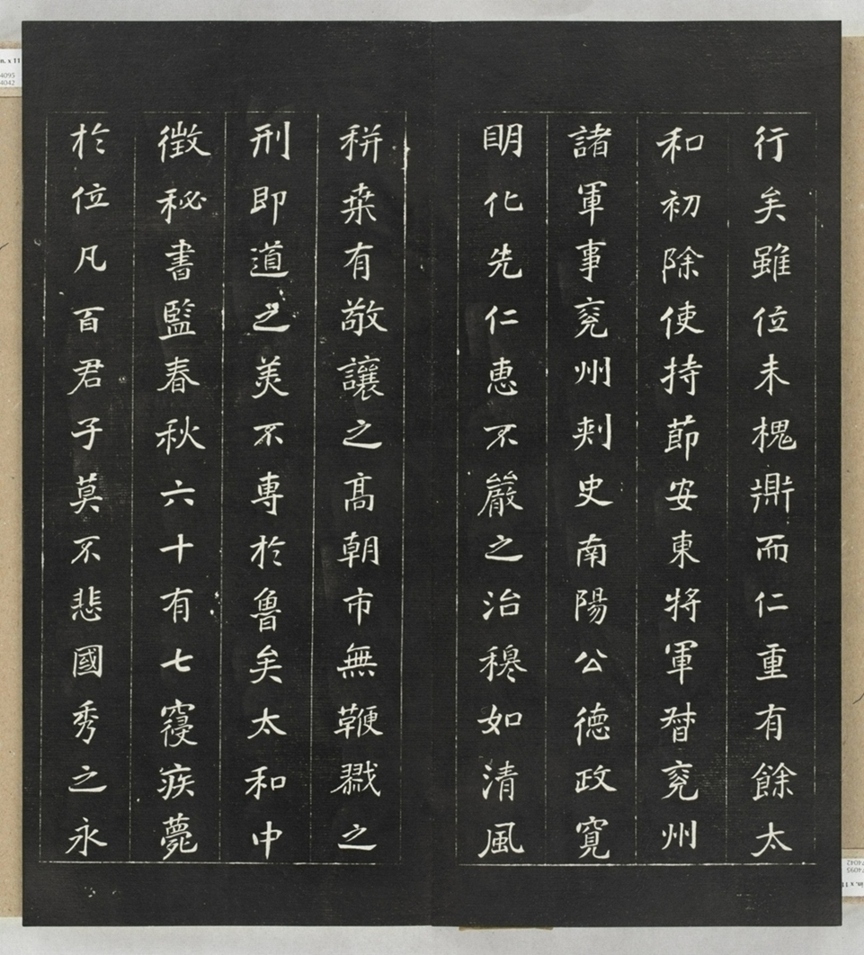 行矣雖位未槐鼎而仁重有餘太
和初除使持節安東將軍督兗州
諸軍事兗州刺史南陽公德政寬
明化先仁惠不嚴之治穆如清風
耕桒有敬讓之高朝市無鞭戮之
刑即道之美不專於魯矣太和中
徵秘書監春秋六十有七寢疾薨
於位凡百君子莫不悲國秀之永